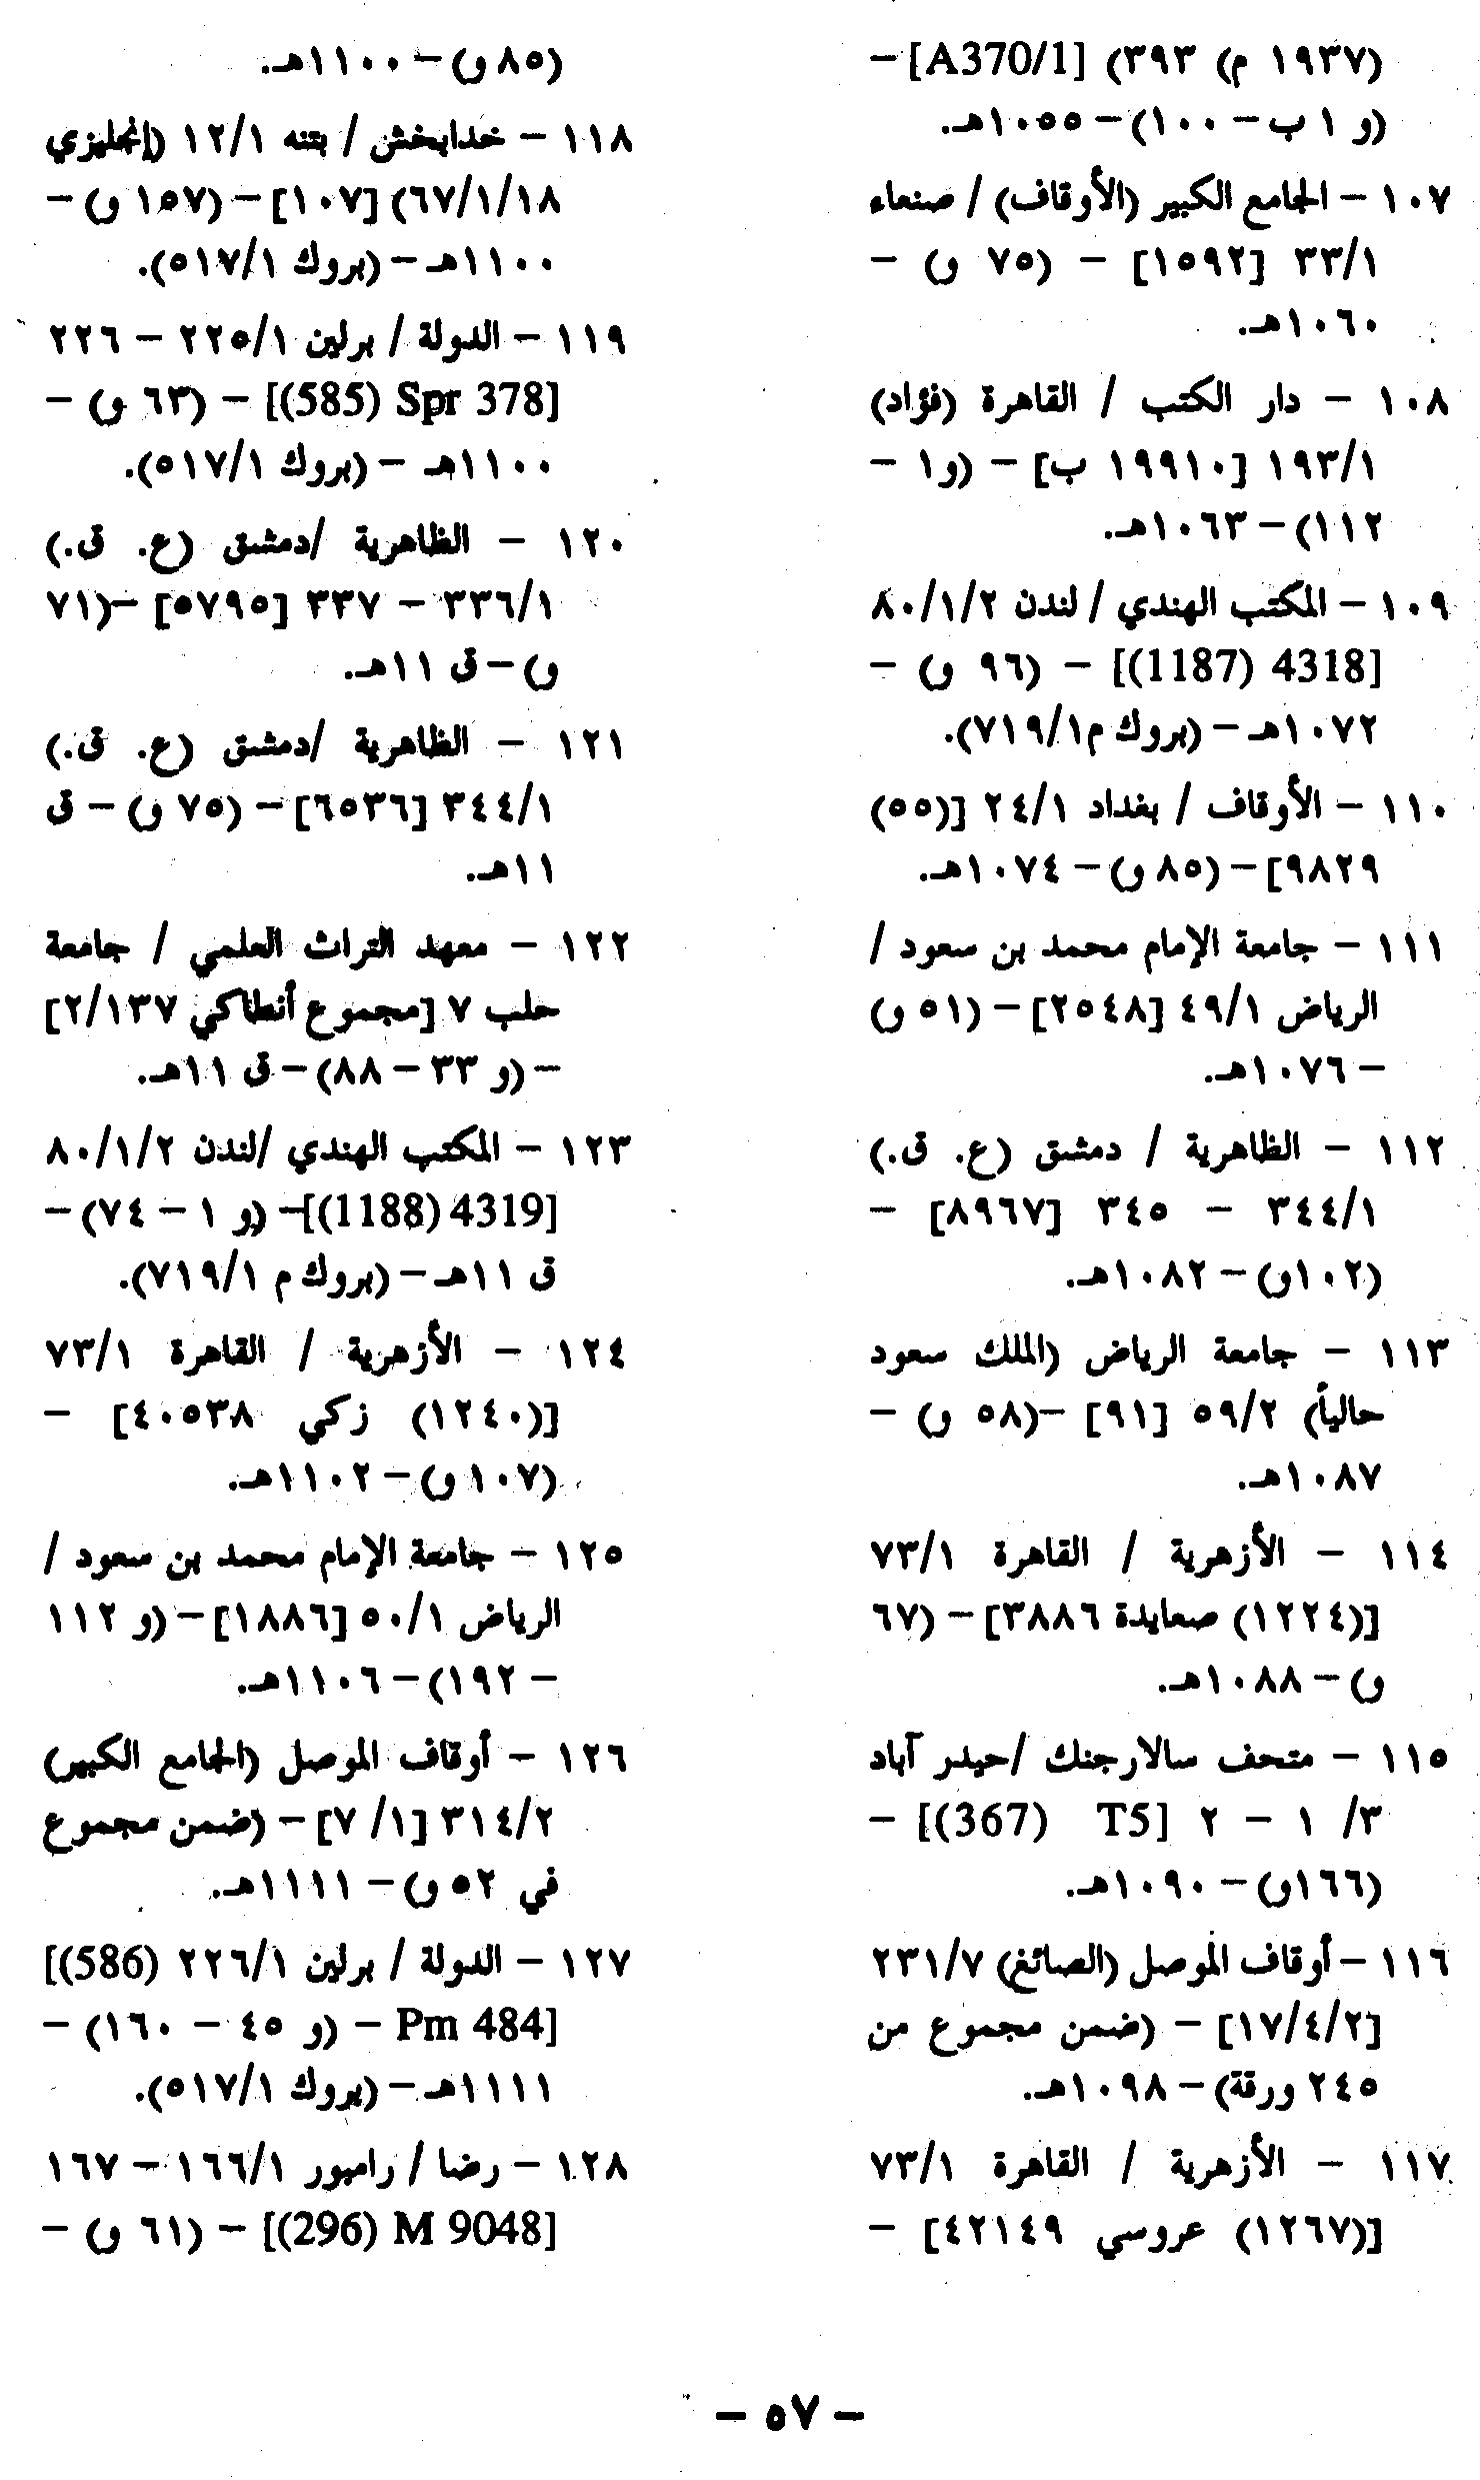 (١٩٣٧ م) ٣٩٣) [A370/1] –
(و ١ ب – ١٠٠) – ١٠٥٥هـ.
١٠٧ – الجامع الكبير (الأوقاف) / صنعاء
٣٣/١ [١٥٩٢] – (٧٥ و) –
١٠٦٠هـ.
١٠٨ – دار الكتب / القاهرة (فؤاد)
١٩٣/١ [١٩٩١٠ ب] – (و١ –
١١٢) – ١٠٦٣هـ.
١٠٩ – المكتب الهندي / لندن ٨٠/١/٢
[(1187) 4318] – (٩٦ و) –
١٠٧٢هـ – (بروك م٧١٩/١).
١١٠ – الأوقاف / بغداد ٢٤/١ [(٥٥)
٩٨٢٩] – (٨٥ و) – ١٠٧٤هـ.
١١١ – جامعة الإمام محمد بن سعود /
الرياض ٤٩/١ [٢٥٤٨] – (٥١ و)
– ١٠٧٦هـ.
١١٢ – الظاهرية / دمشق (ع. ق.)
٣٤٤/١ – ٣٤٥ [٨٩٦٧] –
(١٠٢و) – ١٠٨٢هـ.
١١٣ – جامعة الرياض (الملك سعود
حالياً) ٥٩/٢ [٩١] –(٥٨ و) –
١٠٨٧هـ.
١١٤ – الأزهرية / القاهرة ٧٣/١
[(١٢٢٤) صعايدة ٣٨٨٦] – (٦٧
و) – ١٠٨٨هـ.
١١٥ – متحف سالارجنك /حيدر آباد
٣/ ١ – ٢ [(367) T5] –
(١٦٦و) – ١٠٩٠هـ.
١١٦ – أوقاف الموصل (الصائغ) ٢٣١/٧
[١٧/٤/٢] – (ضمن مجموع من
٢٤٥ ورقة) – ١٠٩٨هـ.
١١٧ – الأزهرية / القاهرة ٧٣/١
[(١٢٦٧) عروسي ٤٢١٤٩] –
(٨٥ و) – ١١٠٠هـ.
١١٨ – خدابخش / بتنه ١٢/١ (إنجليزي
٦٧/١/١٨) [١٠٧] – (١٥٧ و) –
١١٠٠هـ – (بروك ٥١٧/١).
١١٩ – الدولة / برلين ٢٢٥/١ – ٢٢٦
[(585) Spr 378] – (٦٣ و) –
١١٠٠هـ – (بروك ٥١٧/١).
١٢٠ – الظاهرية /دمشق (ع. ق.)
٣٣٦/١ – ٣٣٧ [٥٧٩٥] –(٧١
و) – ق ١١هـ.
١٢١ – الظاهرية /دمشق (ع. ق.)
٣٤٤/١ [٦٥٣٦] – (٧٥ و) – ق
١١هـ.
١٢٢ – معهد التراث العلمي / جامعة
حلب ٧ [مجموع أنطاكي ٢/١٣٧]
– (و ٣٣ – ٨٨) – ق ١١هـ.
١٢٣ – المكتب الهندي /لندن ٨٠/١/٢
[(1188) 4319]– (و ١ – ٧٤) –
ق ١١هـ – (بروك م ٧١٩/١).
١٢٤ – الأزهرية / القاهرة ٧٣/١
[(١٢٤٠) زكي ٤٠٥٣٨] –
(١٠٧ و) – ١١٠٢هـ.
١٢٥ – جامعة الإمام محمد بن سعود /
الرياض ٥٠/١ [١٨٨٦] – (و ١١٢
– ١٩٢) – ١١٠٦هـ.
١٢٦ – أوقاف الموصل (الجامع الكبير)
٣١٤/٢ [١/ ٧] – (ضمن مجموع
في ٥٢ و) – ١١١١هـ.
١٢٧ – الدولة / برلين ٢٢٦/١ [(586)
Pm 484] – (و ٤٥ – ١٦٠) –
١١١١هـ – (بروك ٥١٧/١).
١٢٨ – رضا / رامبور ١٦٦/١ – ١٦٧
[(296) M 9048] – (٦١ و) –
– ٥٧ –